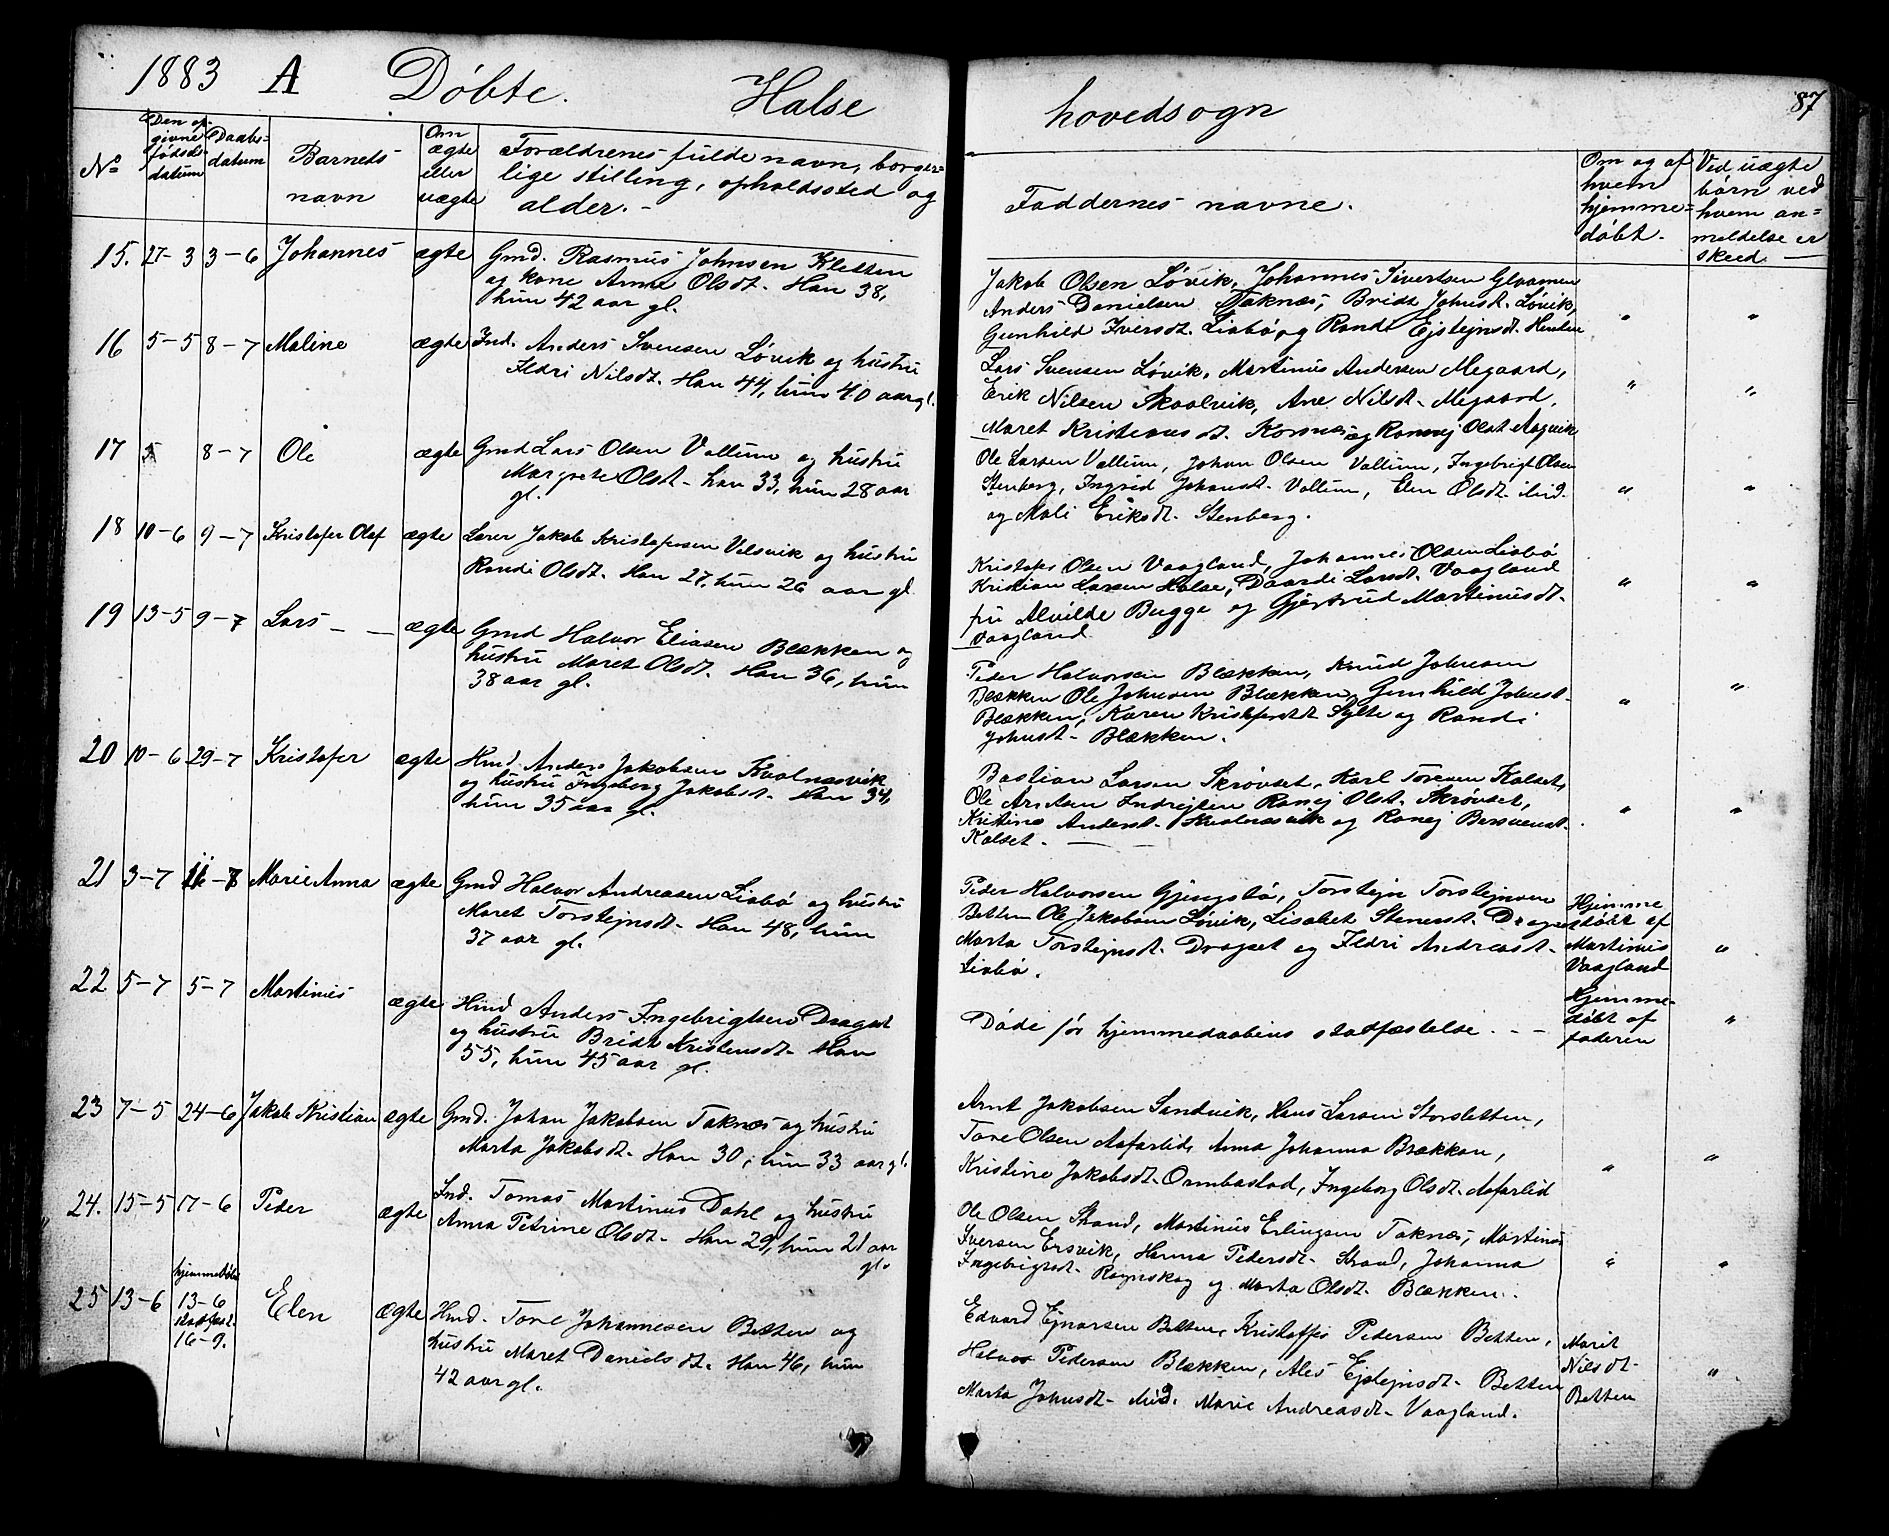 1883 A Døbte. Halse
hovedsogn
87
No
Den op-
givne
fødsels
datum
Daabs-
datum
Barnets
navn
Om
ægte
eller
uægte
Forældrenes fulde navn, borger=
lige stilling, opholdssted og
alder. -
Faddernes navne.
Om og af
hvem
hjemme=
døbt.
Ved uægte
børn ved
hvem an=
meldelse er
skeed. —
15. 27-3 3-6 Johannes ægte Gmd. Rasmus Johnsen Kletten
og kone Anne Olsdt. Han 38,
hun 42 aar gl.
Jakob Olsen Løvik, Johannes Sivertsen
Anders Danielsen Taknæs, Bridt Johnsdt. Løvik,
Gunhild Iversdt. Liabø og Randi Ejstejnsdt. Henden
" "
16 5-5 8-7 Maline ægte Ind. Anders Svensen Løvik og hustru
Ildri Nilsdt. Han 44, hun 40 aar gl.
Lars Svensen Løvik, Martinus Andersen Megaard,
Erik Nilsen Skaalvik, Ane Nilsdt. Megaard,
Maret Kristiansdt. Korsnæs og Ranvej Olsdt Aagvik
" "
17 5 8-7 Ole ægte Gmd Lars Olsen Vallum og hustru
Margrete Olsdt. han 33, hun 28 aar
gl.
Ole Larsen Vullum, Johan Olsen Vullum, Ingebrigt Olsen
Stenberg, Ingrid Johansdt. Vullum, Elen Olsdt. ibid.
og Mali Eriksdt. Stenberg.
" "
18 10-6 9-7 Kristofer Olaf ægte Lærer Jakob Kristofersen Valsvik og hustru
Randi Olsdt. Han 27, hun 26 aar gl
Kristofer Olsen Vaagland, Johannes Olsen Liabø
Kristian Larsen Halse, Daardi Larsdt. Vaagland
fru Alvilde Bugge og Gjertrud Martinusdt.
Vaagland.
" "
19 13-5 9-7 Lars — — ægte Gmd Halvor Eliasen Blækken og
hustru Maret Olsdt. Han 36, hun
38 aar gl.
Peder Halvorsen Blækken, Knud Johnsen
Blækken Ole Johnsen Blækken, Gunhild Johnsdt.
Blækken, Karen Kristofersdt Sylte og Randi
Johnsdt. Blækken.
" "
20 10-6 29-7 Kristofer ægte Hmd. Anders Jakobsen Kvalnæsvik
og hustru Ingeborg Jakobsdt. Han 34,
hun 35 aar gl.
Bastian Larsen Skrøvset, Karl Toresen Kalset,
Ole Arntsen Indrejten Ranej Olsdt. Skrøvset,
Kristine Andersdt. Kvalnæsvik og Ranej Bersvendt.
Kalset. — —
" "
21 3-7 11-8 Marie Anna ægte Gmd Halvor Andreasen Liabø og hustru
Maret Torstejnsdt. Han 48, hun
37 aar gl.
Peder Halvorsen Gjengstø, Torstejn Torstejnsen
Betten Ole Jakobsen Løvik, Lisabet Stenersdt. Dragset
Marta Torstejnsdt. Dragset og Ildri Andreasdt.
Liabø.
Hjemme
døbt af
Martinus
Vaagland
"
22 5-7 5-7 Martinus ægte Hmd Anders Ingebrigtsen Dragset
og hustru Bridt Kristensdt. Han
55, hun 45 aar gl.
Døde før hjemmedaabens stadfæstelse. - -
Hjemme-
døbt af
faderen
"
23 7-5 24-6 Jakob Kristian ægte Gmd. Johan Jakobsen Taknæs og hustru
Marta Jakobsdt. Han 30, hun 33 aar gl.
Arnt Jakobsen Sandvik, Hans Larsen Storsletten,
Tore Olsen Aafarlid, Anna Johanna Brækkan,
Kristine Jakobsdt. Ormbostad, Ingeborg Olsdt. Aafarlid
" "
24. 15-5 17-6 Peder ægte Ind. Tomas Martinus Dahl og hustru
Anna Petrine Olsdt. Han 29, hun 21 aar
gl.
Ole Olsen Strand, Martinus Erlingsen Taknæs, Martinus
Iversen Ersvik, Hanna Pedersdt. Strand, Johanna
Ingebrigtsdt. Ravnskog og Marta Olsdt. Blækken.
" "
25 13-6 hjemmedøbt
13-6
stadfæst.
16-9.
Elen ægte Hmd. Tore Johannesen Betten og
hustru Maret Danielsdt. Han 46, hun
42 aar gl.
Edvard Ejnarsen Betten, Kristoffer Pedersen Betten,
Halvor Pedersen Blækken, Ales Ejstejnsdt. Betten
Marta Johnsdt. ibid. Marie Andreasdt. Vaagland.
Marit
Nilsdt.
Betten
"